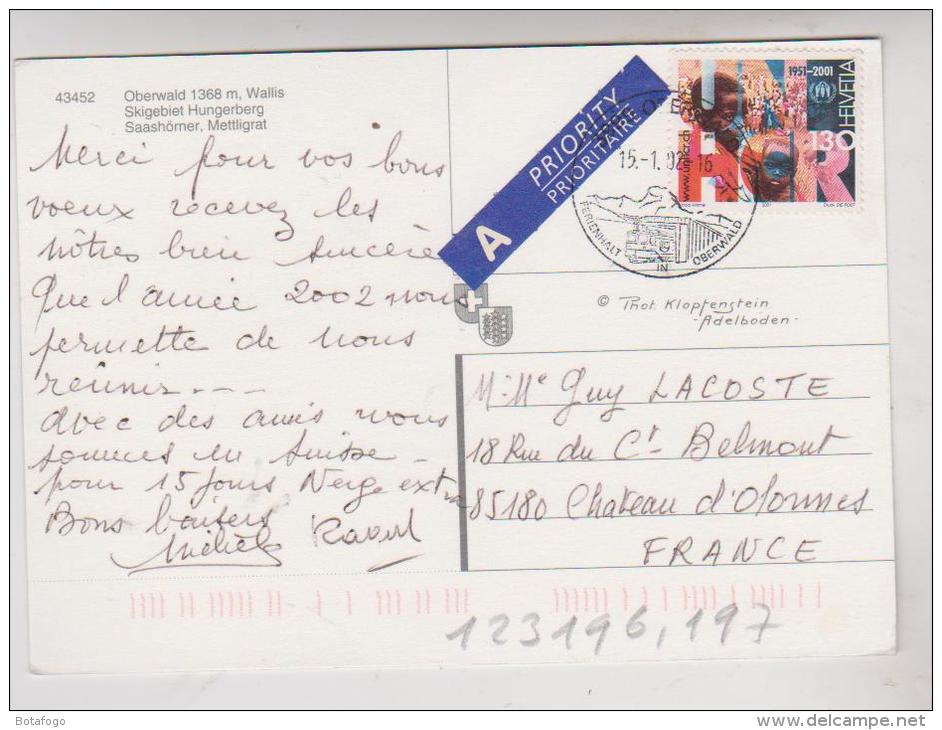 43452
Oberwald 1368 m, Wallis
Skigebiet Hungerberg
Saashörner, Mettligrat
Merci pour vos bons
voeux recevez les
nôtres bien sincère
Que l'année 2002 nous
permette de nous
réunir ---
avec des amis nous
sommes en Suisse -
pour 15 jours Neige extra
Bons baisers
Michèle Raoul
A PRIORITY
PRIORITAIRE
15.-1.02 - 16
FERIENHALT IN OBERWALD
1951-2001
HELVETIA
130
www.unhcr.ch
2001
© Phot. Klopfenstein
-Adelboden-
M. Me Guy LACOSTE
18 Rue du Ct Belmont
85180 Chateau d'Olonnes
FRANCE
123196,197
Botafogo
www.delcampe.net